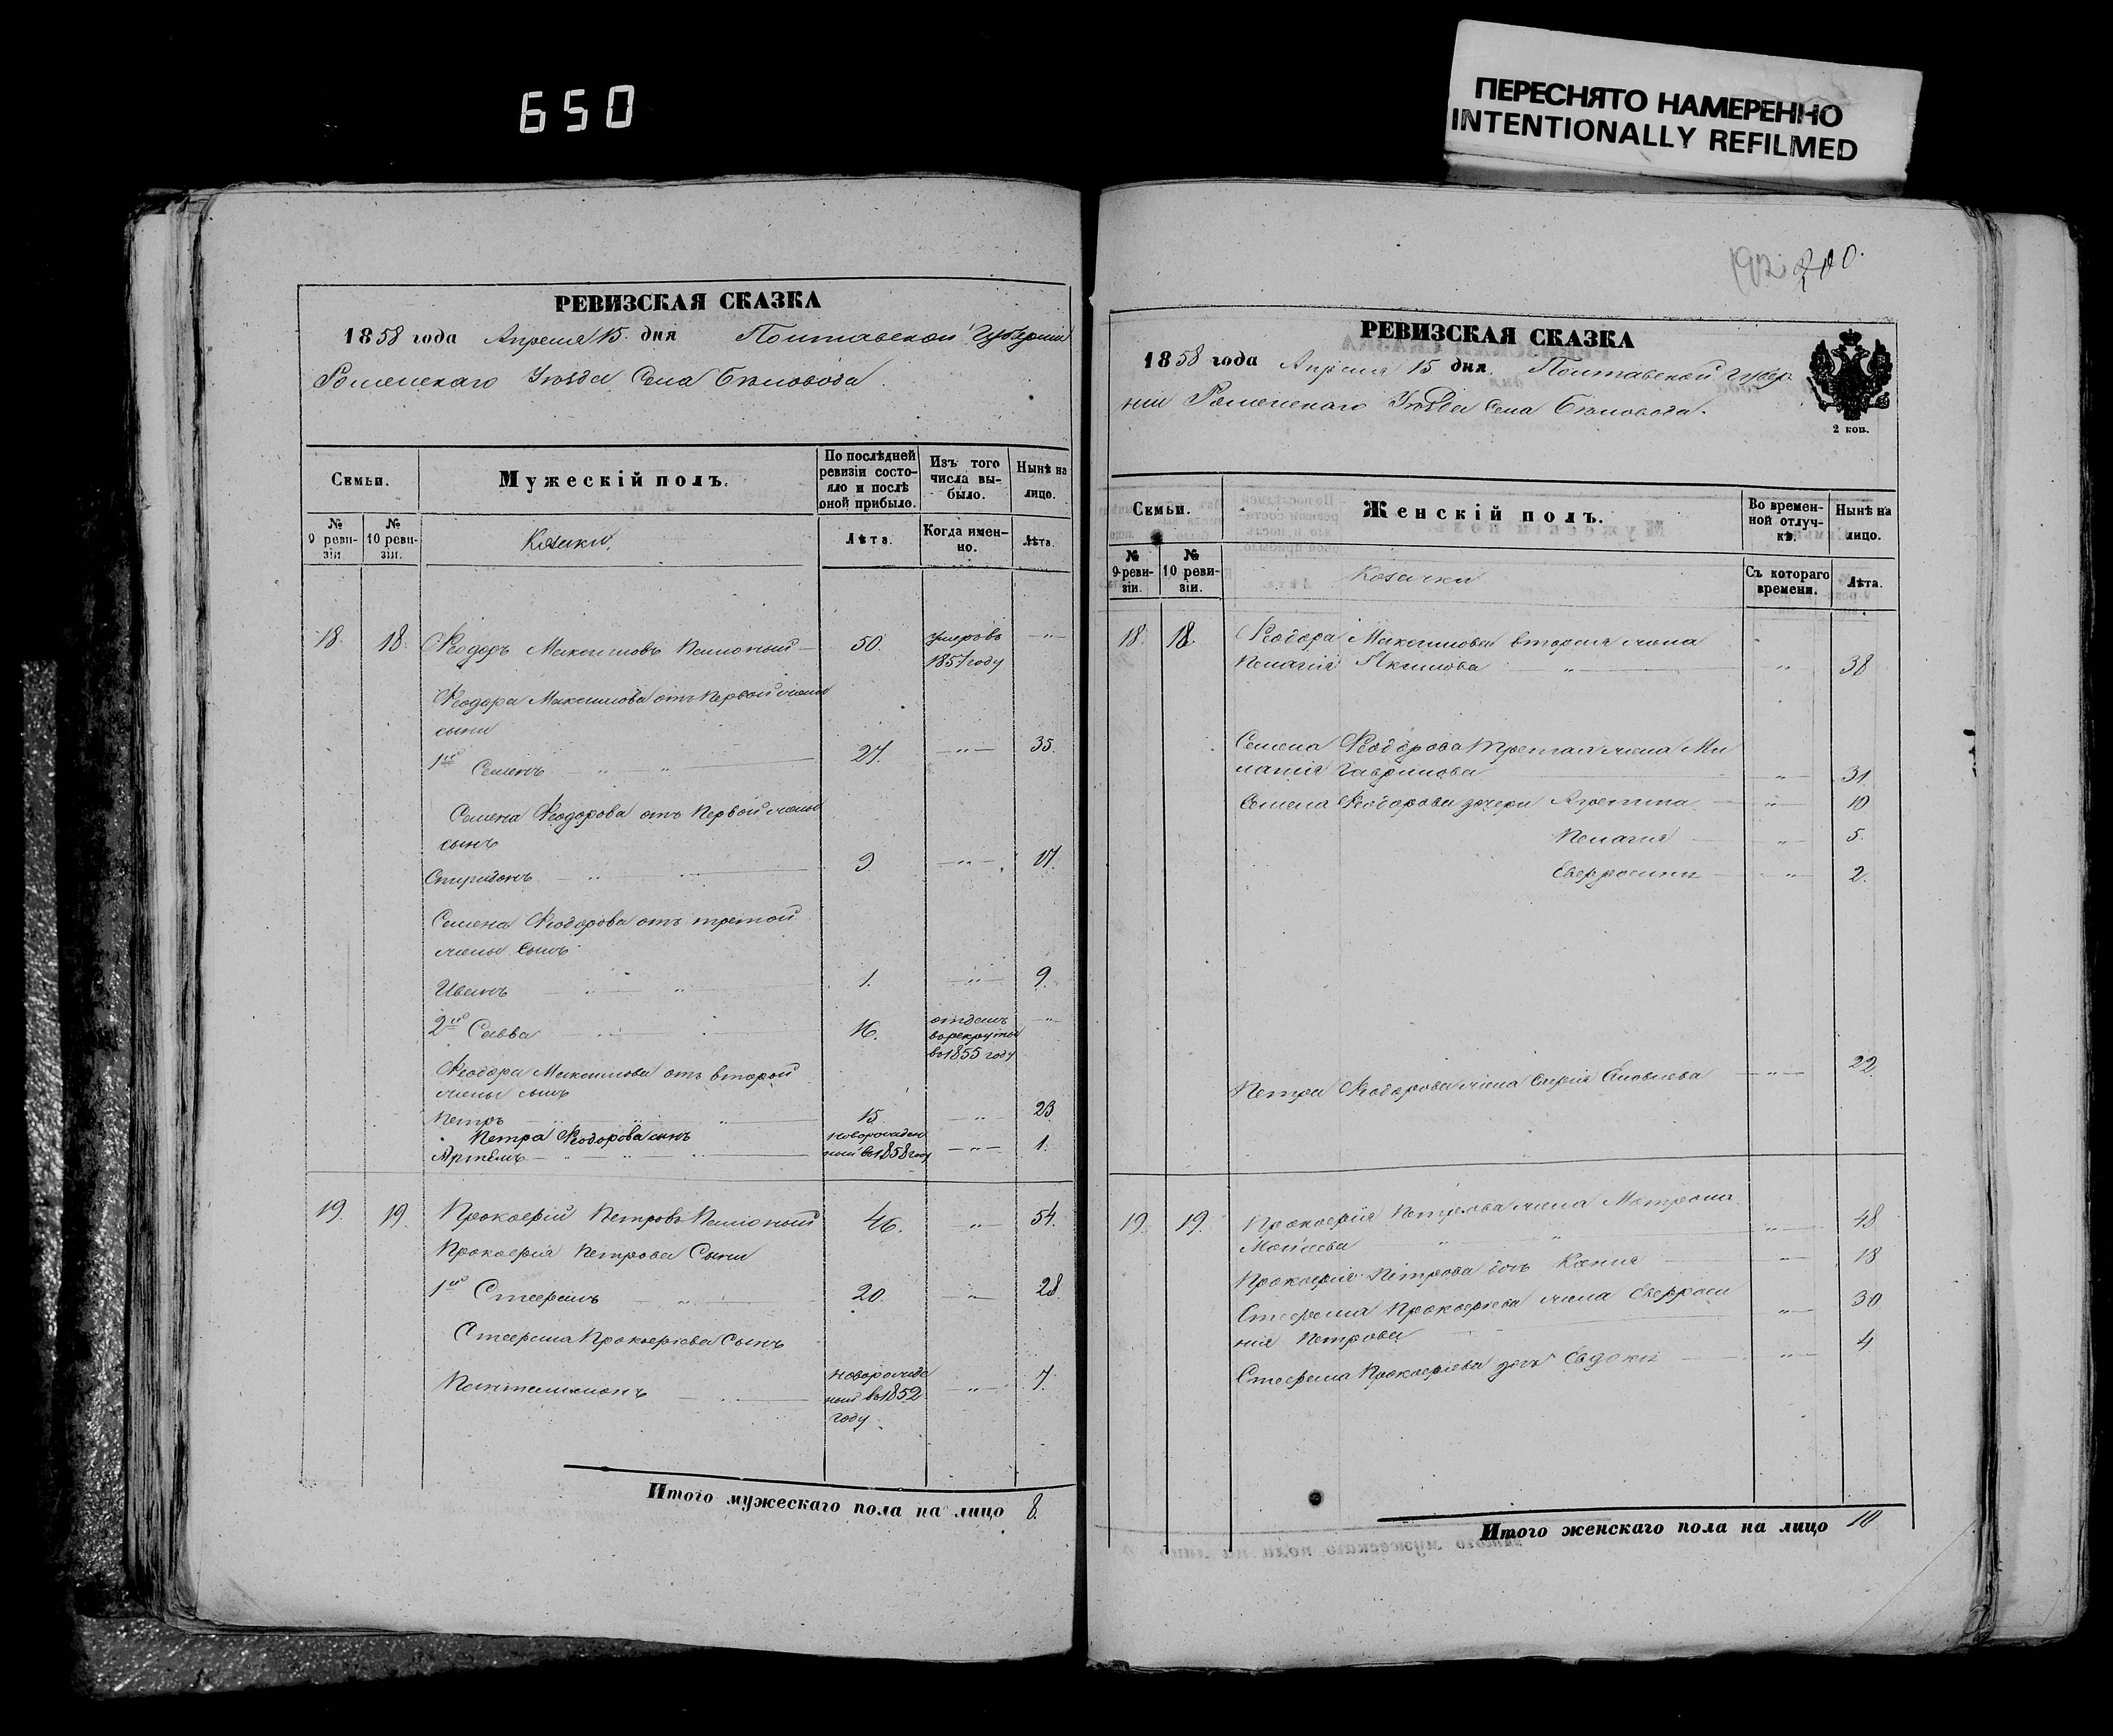 650
ПЕРЕСНЯТО НАМЕРЕННО
INTENTIONALLY REFILMED
200.
РЕВИЗСКАЯ СКАЗКА
1858 года Апреля 15 дня Полтавской Губерніи
Роменскаго Уѣзда Села Бѣловода.
Семьи.
Мужескій полъ.
По послѣдней ревизіи состояло и послѣ оной прибыло.
Изъ того числа выбыло.
Нынѣ на лицо.
№ 9 ревизіи.
№ 10 ревизіи.
Козаки.
Лѣта.
Когда именно.
Лѣта.
18. 18. Феодоръ Максимовъ 50. умеръ въ 1857 году
Феодора Максимова отъ Первой жены
сыны
1й Семенъ 27. 35.
Семена Феодорова отъ Первой жены
сынъ
Спиридонъ 9 17.
Семена Феодорова отъ третой
жены сынъ
Иванъ 1. 9.
2й Савва 16. отданъ въ рекруты въ 1855 году
Феодора Максимова отъ второй
жены сынъ
Петръ 15 23
Петра Феодорова сынъ
Артемъ новорожденный въ 1858 году 1.
19. 19. Прокофій Петровъ 46. 54.
Прокофія Петрова Сыны
1й Стефанъ 20. 28.
Стефана Прокофіева Сынъ
Пантелимонъ новорожденный въ 1852 году 7.
Итого мужескаго пола на лицо 8.
РЕВИЗСКАЯ СКАЗКА
1858 года Апреля 15 дня Полтавской Губер
ніи Роменскаго Уѣзда Села Бѣловода.
2 коп.
Семьи.
Женскій полъ.
Во временной отлучкѣ.
Нынѣ на лицо.
№ 9 ревизіи.
№ 10 ревизіи.
Козачки
Съ котораго времени.
Лѣта.
18. 18. Феодора Максимова вторая жена
Пелагія Якимова 38
Семена Феодорова третая жена Ме
ланія Гаврилова 31
Семена Феодорова дочери 10
Пелагія 5.
Евфросинія 2.
Петра Феодорова жена 22
19. 19. Прокофія Петрова жена Матрона
Моисеева 48
Прокофія Петрова дочь 18
Стефана Прокофіева жена Евфроси
нія Петрова 30
Стефана Прокофіева дочь Евдокія 4
Итого женскаго пола на лицо 10